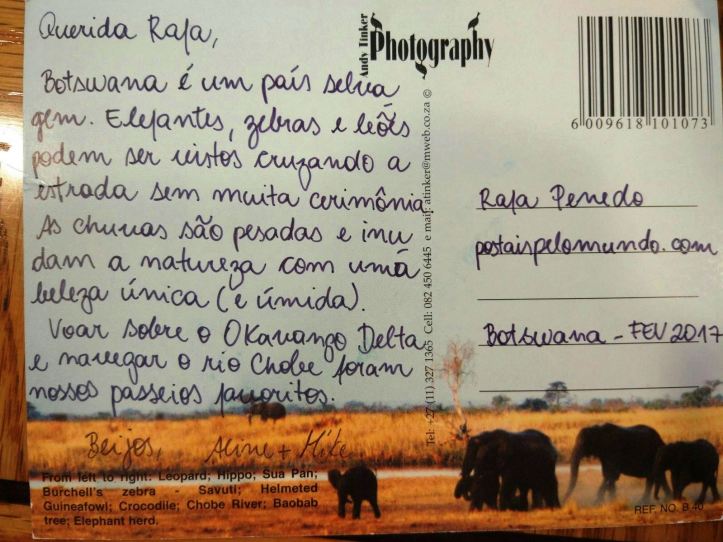 Querida Rafa,
Botswana é um país selva
gem. Elefantes, zebras e leões
podem ser vistos cruzando a
estrada sem muita cerimônia.
As chuvas são pesadas e inu
dam a natureza com uma
beleza única (e úmida).
Voar sobre o Okavango Delta
e navegar o rio Chobe foram
nossos passeios favoritos.
Beijos, Aline + Mike
From left to right: Leopard; Hippo; Sua Pan;
Burchell's zebra - Savuti; Helmeted
Guineafowl; Crocodile; Chobe River; Baobab
tree; Elephant herd.
Andy Tinker
Photography
Tel: +27 (11) 327 1365 Cell: 082 450 6445 e mail: atinker@mweb.co.za ©
6 009618 101073
Rafa Penedo
postaispelomundo.com
Botswana - FEV 2017
REF. NO. B 40